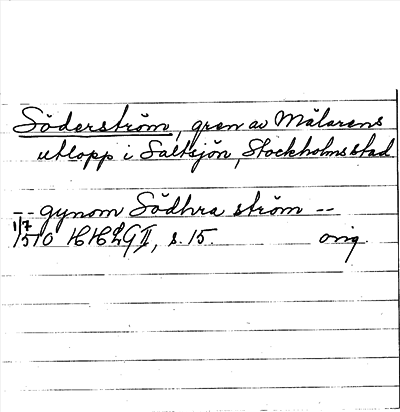 Söderström, gren av Mälarens
utlopp i Saltsjön, Stockholms stad
-- gynom Södhra ström --
1/7 1510 HHLG II, s. 15. orig.